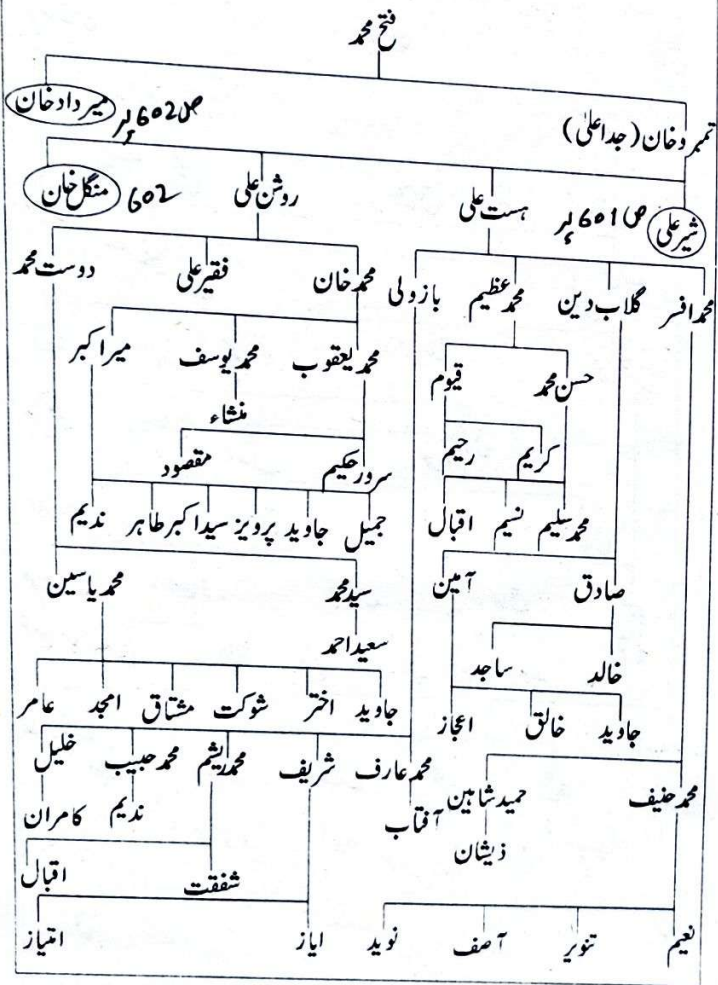 فتح محمد
تمبر وخان (جداعلیٰ) ص602 پر میر دادخان
شیر علی ص601 پر ہست علی روشن علی 602 منگل خان
محمد افسر گلاب دین محمد عظیم بازولی محمدخان فقیر علی دوست محمد
حسن محمد قیوم محمد یعقوب محمد یوسف میراکبر
کریم رحیم منشاء
سرور حکیم مقصود
محمد سلیم نسیم اقبال جمیل جاوید پرویز سیداکبر طاہر ندیم
صادق آمین سید محمد محمد یاسین
سعید احمد
خالد ساجد
جاوید خالق اعجاز جاوید اختر شوکت مشتاق امجد عامر
محمد حنیف حمید شاہین محمد عارف شریف محمد ریشم محمد حبیب خلیل
آفتاب ندیم کامران
ذیشان
شفقت اقبال
نعیم تنویر آصف نوید ایاز امتیاز